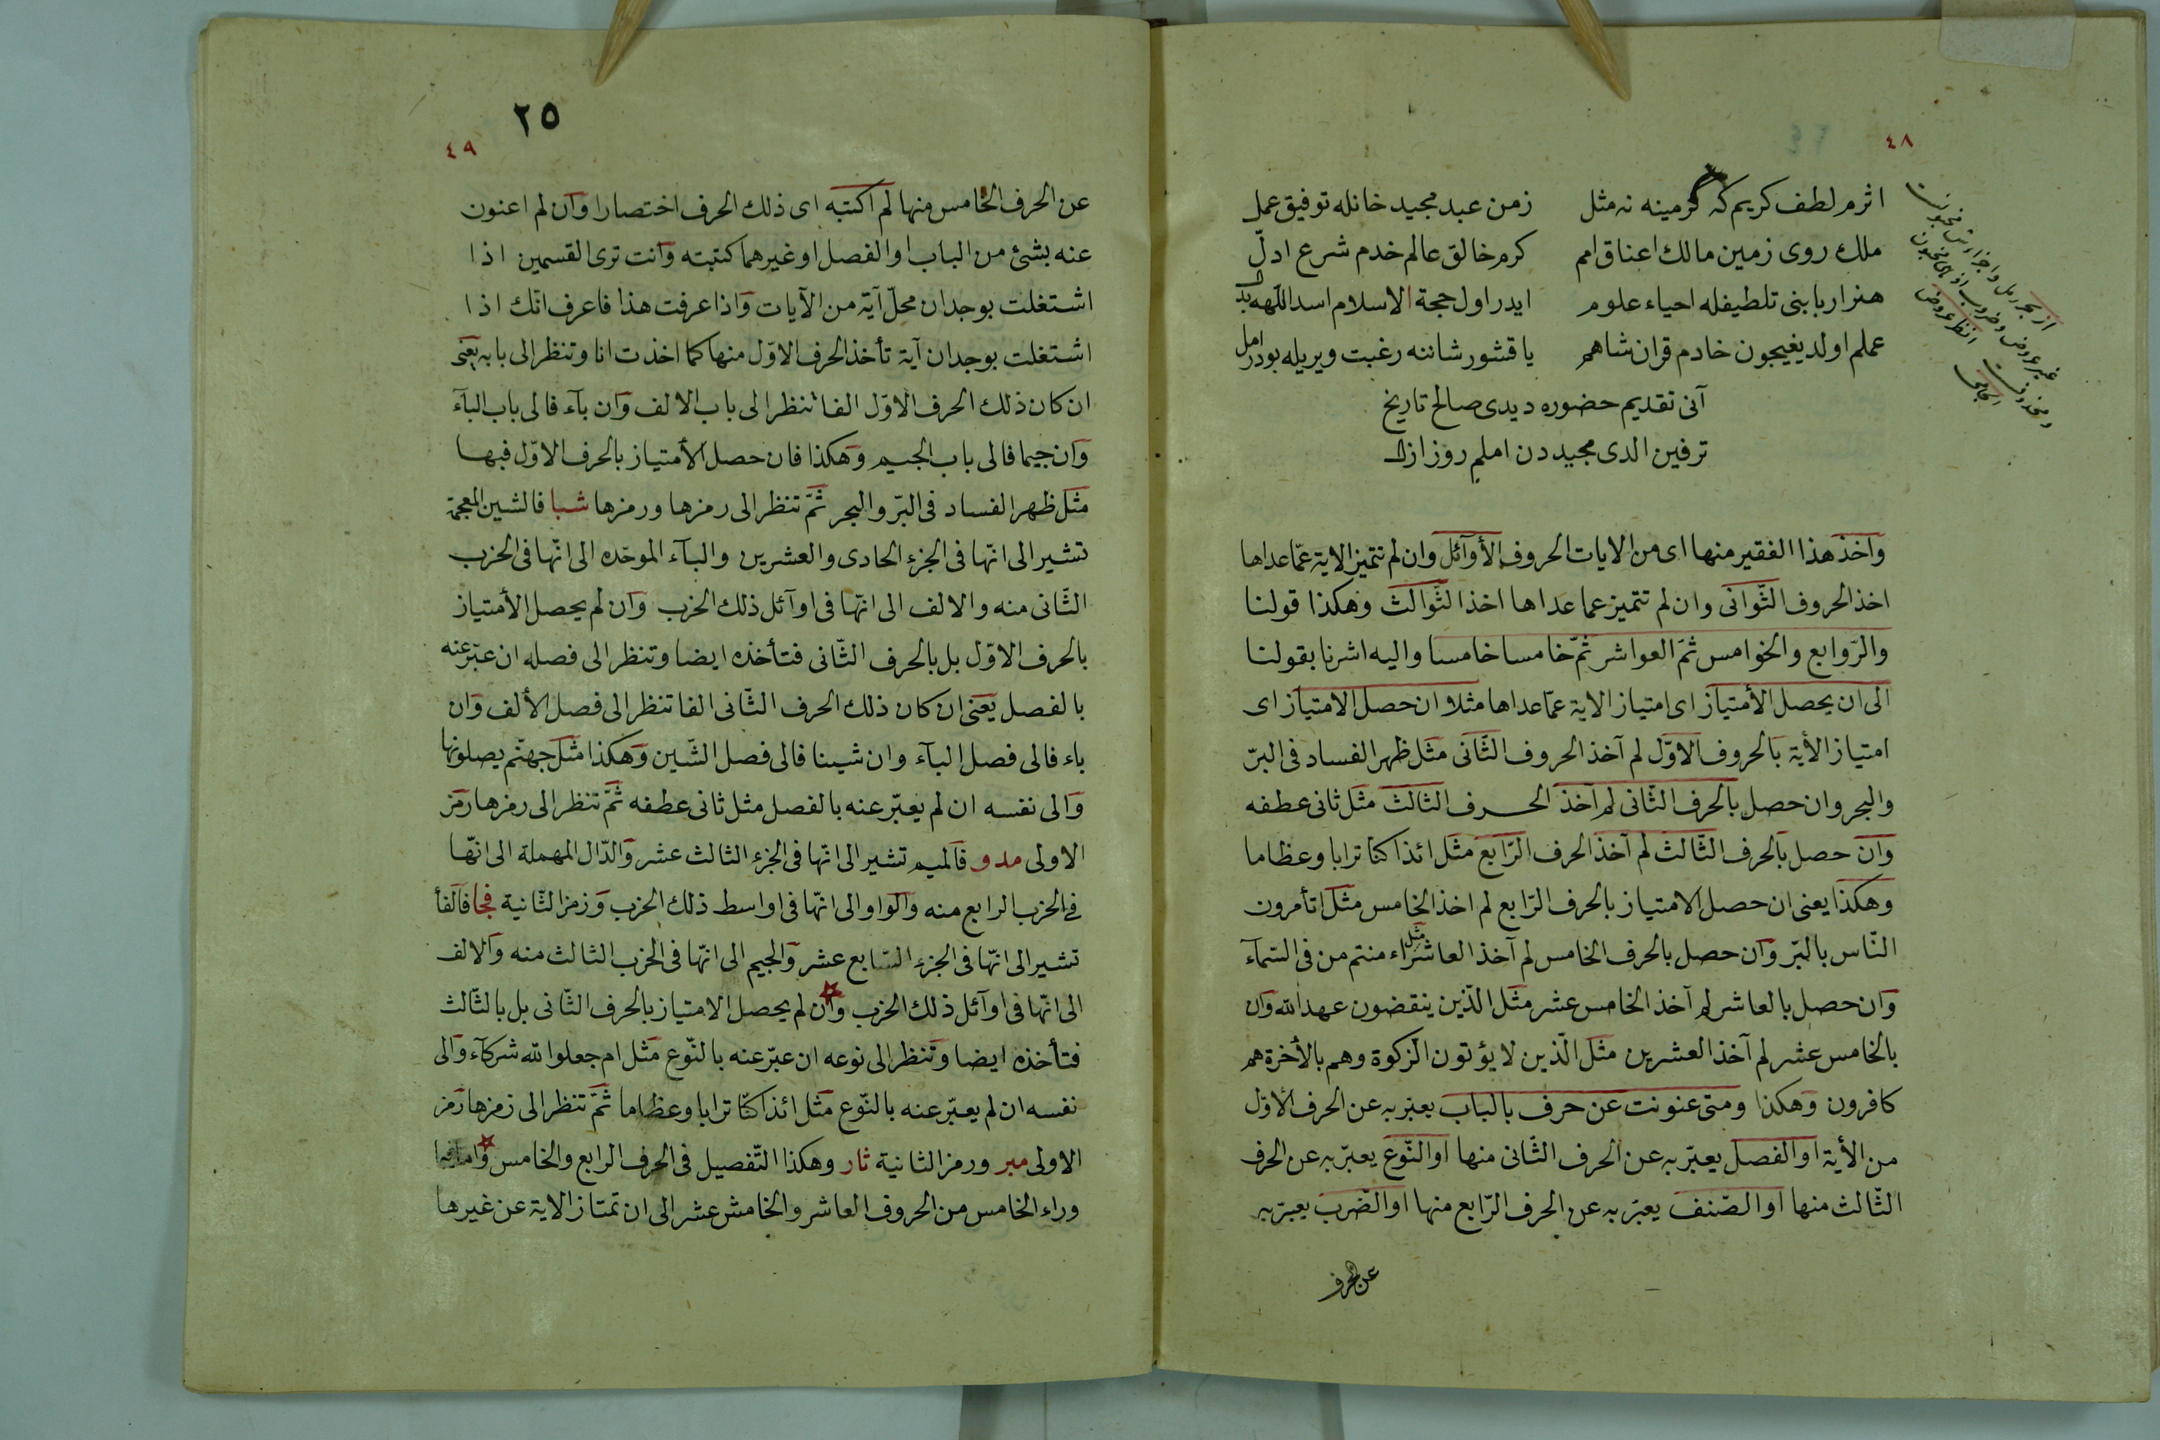 ٤٨
اثرم لطف كريم كه كرمينه نه مثل زمن عبد مجيد خانله توفيق عمل
ملك روى زمين مالك اعناق امم كرم خالق عالم خدم شرع ادلّ
هنراربابنى تلطيفله احياء علوم ايدر اول حجة الاسلام اسد اللّهه بدل
عملم اولديغيچون خادم قران شاهم ياقشور شاننه رغبت ويريله بودر امل
آنى تقديم حضوره ديدى صالح تاريخ
ترفين الدى مجيددن املم روز ازل
از بحر رمل
واخذ هذا الفقير منها اى من الايات الحروف الأوآئل وان لم تتميز الاية عمّا عداها
اخذ الحروف الثّوانى وان لم تتميز عما عداها اخذ الثّوالث وهكذا قولنا
والرّوابع والخوامس ثمّ العواشر ثمّ خامسا خامسا واليه اشرنا بقولنا
الى ان يحصل الأمتياز اى امتياز الاية عمّا عداها مثلا ان حصل الامتياز اى
امتياز الأية بالحروف الاوّل لم آخذ الحروف الثّانى مثل ظهر الفساد فى البرّ
والبحر وان حصل بالحرف الثّانى لم آخذ الحرف الثالث مثل ثانى عطفه
وان حصل بالحرف الثّالث لم آخذ الحرف الرّابع مثل ائذا كنّا ترابا وعظاما
وهكذا يعنى ان حصل الامتياز بالحرف الرّابع لم اخذ الخامس مثل اتأمرون
النّاس بالبرّ وان حصل بالحرف الخامس لم آخذ العاشر مثل اء منتم من فى السّمآء
وان حصل بالعاشر لم آخذ الخامس عشر مثل الّذين ينقضون عهد الله وان
بالخامس عشر لم آخذ العشرين مثل الّذين لا يؤتون الزكوة وهم بالأخرة هم
كافرون وهكذا ومتى عنونت عن حرف بالباب يعبّر به عن الحرف الاوّل
من الأية او الفصل يعبّر به عن الحرف الثّانى منها او النّوع يعبّر به عن الحرف
الثّالث منها او الصّنف يعبّر به عن الحرف الرّابع منها او الضّرب يعبّر به
عن الحرف
٢٥
٤٩
عن الحرف الخامس منها لم اكتبه اى ذلك الحرف اختصارا وان لم اعنون
عنه بشئ من الباب او الفصل او غيرهما كتبته وانت ترى القسمين اذا
اشتغلت بوجدان محلّ آية من الآيات واذا عرفت هذا فاعرف انّك اذا
اشتغلت بوجدان آية تأخذ الحرف الاوّل منها كما اخذت انا وتنظر الى بابه يعنى
ان كان ذلك الحرف الاوّل الفا تنظر الى باب الالف وان بآء فالى باب البآء
وان جيما فالى باب الجيم وهكذا فان حصل الأمتياز بالحرف الاوّل فبها
مثل ظهر الفساد فى البرّ والبحر ثمّ تنظر الى رمزها ورمزها شبا فالشين المعجمة
تشير الى انّها فى الجزء الحادى والعشرين والبآء الموحّده الى انّها فى الحزب
الثّانى منه والالف الى انّها فى اوآئل ذلك الحزب وان لم يحصل الأمتياز
بالحرف الاوّل بل بالحرف الثّانى فتأخذه ايضا وتنظر الى فصله ان عبّر عنه
بالفصل يعنى ان كان ذلك الحرف الثّانى الفا تنظر الى فصل الألف وان
باء فالى فصل البآء وان شينا فالى فصل الشّين وهكذا مثل جهنّم يصلونها
والى نفسه ان لم يعبّر عنه بالفصل مثل ثانى عطفه ثمّ تنظر الى رمزها رمز
الاولى مدو فالميم تشير الى انّها فى الجزء الثالث عشر والدّال المهملة الى انّها
فى الحزب الرابع منه والواو الى انّها فى اواسط ذلك الحزب ورمز الثّانية فجا فالفآ
تشير الى انّها فى الجزء السّابع عشر والجيم الى انّها فى الحزب الثالث منه والالف
الى انّها فى اوآئل ذلك الحزب وان لم يحصل الامتياز بالحرف الثّانى بل بالثّالث
فتأخذه ايضا وتنظر الى نوعه ان عبّر عنه بالنّوع مثل ام جعلوا لله شركآء والى
نفسه ان لم يعبّر عنه بالنّوع مثل ائذا كنّا ترابا وعظاما ثمّ تنظر الى رمزها رمز
الاولى مبر ورمز الثانية ثار وهكذا التّفصيل فى الحرف الرابع والخامس
وراء الخامس من الحروف العاشر والخامس عشر الى ان تمتاز الاية عن غيرها